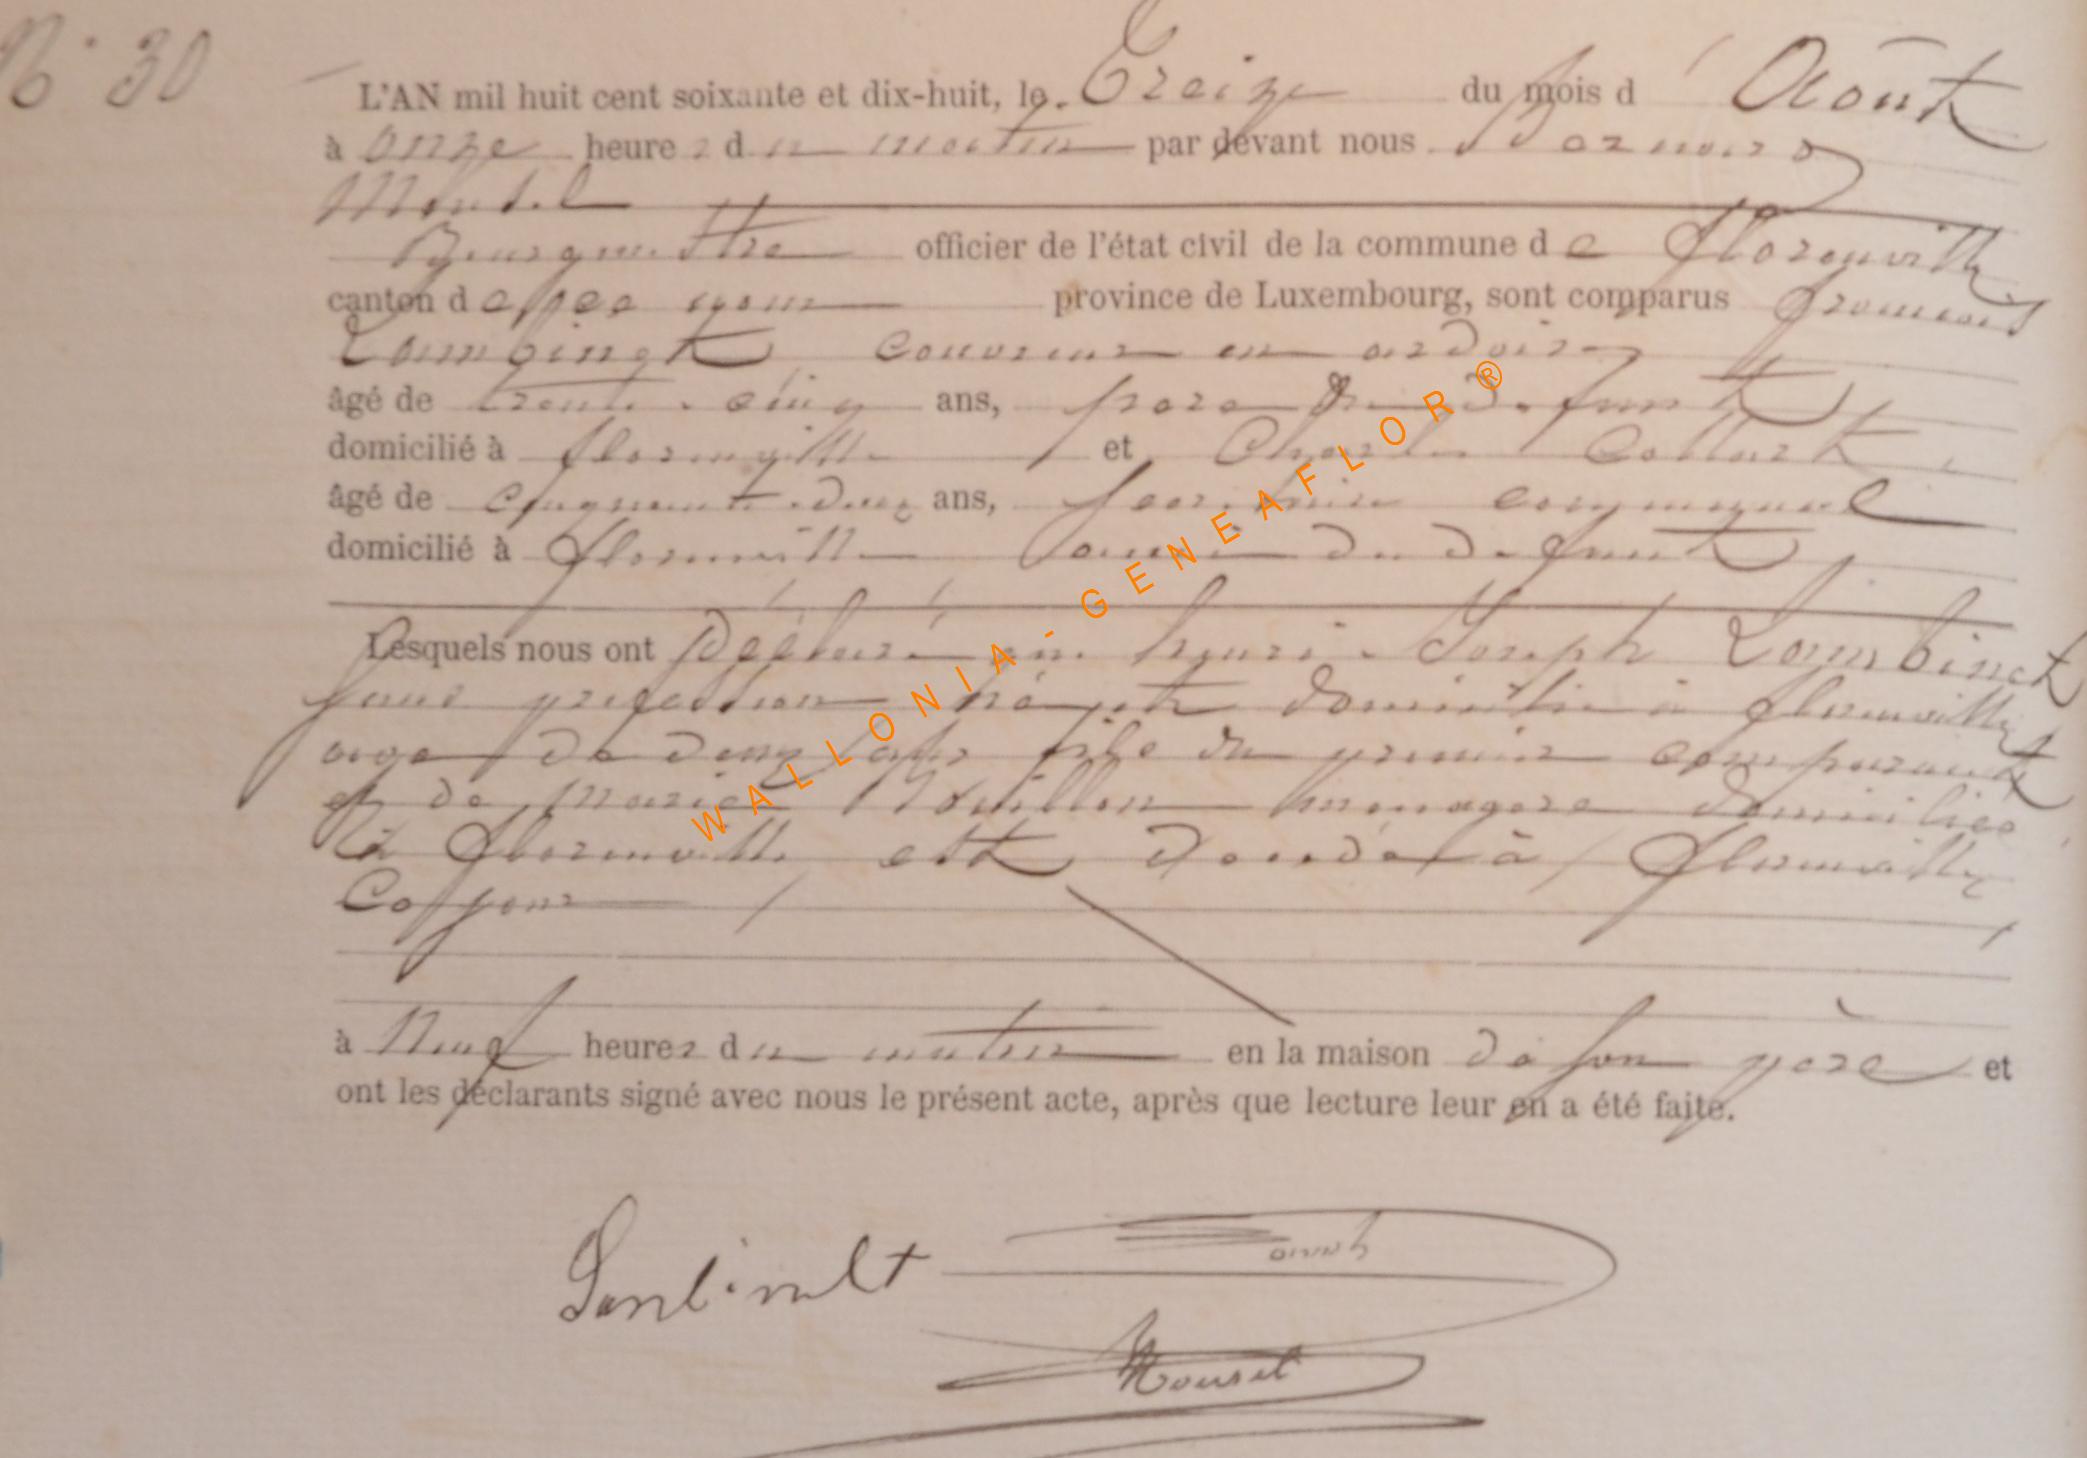 N° 30
L'AN mil huit cent soixante et dix-huit, le Treize du mois d' Août
à onze heures du matin par devant nous Bernard
Mousel
Bourgmestre officier de l'état civil de la commune de florenville
canton de ce nom province de Luxembourg, sont comparus françois
Lambinet couvreur en ardoises
âgé de trente-cinq ans, père du défunt
domicilié à florenville et Charles Collart,
âgé de cinquante-deux ans, secrétaire communal
domicilié à florenville du défunt
Lesquels nous ont Déclaré que henri-Joseph Lambinet
sans profession né et domicilié à florenville
âgé de deux fils du premier comparant
et de Marie ménagère domiciliée
à florenville est décédé à florenville
Ce jour
à Neuf heures du matin en la maison de son père et
ont les déclarants signé avec nous le présent acte, après que lecture leur en a été faite.
Mousel
WALLONIA-GENEAFLOR®